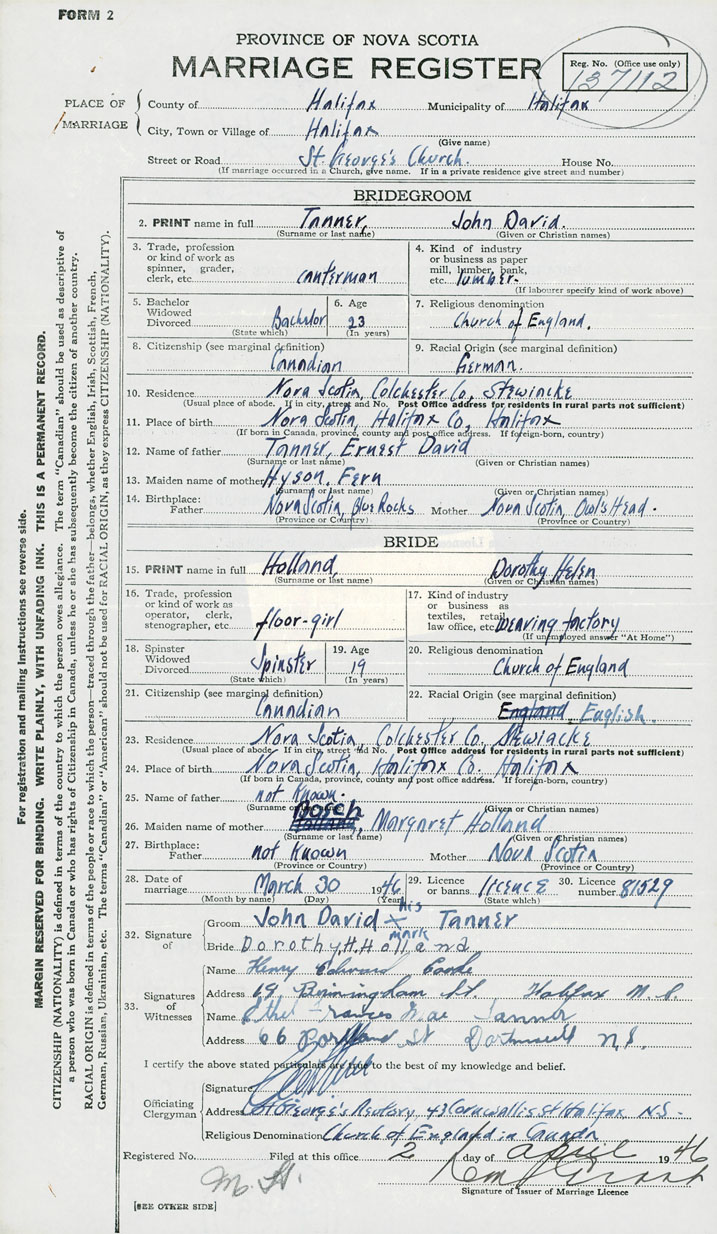 FORM 2
PROVINCE OF NOVA SCOTIA
MARRIAGE REGISTER
Reg. No. (Office use only)
137112
PLACE OF MARRIAGE
County of Halifax Municipality of Halifax
City, Town or Village of Halifax
(Give name)
Street or Road St. George's Church. House No.
(If marriage occurred in a Church, give name. If in a private residence give street and number)
BRIDEGROOM
2. PRINT name in full Tanner, John David.
(Surname or last name) (Given or Christian names)
3. Trade, profession or kind of work as spinner, grader, clerk, etc. canterman
4. Kind of industry or business as paper mill, lumber, bank, etc. lumber.
(If labourer specify kind of work above)
5. Bachelor Widowed Divorced Bachelor
(State which)
6. Age 23
(In years)
7. Religious denomination
Church of England.
8. Citizenship (see marginal definition)
Canadian
9. Racial Origin (see marginal definition)
German.
10. Residence Nova Scotia, Colchester Co, Stewiacke
(Usual place of abode. If in city, street and No. Post Office address for residents in rural parts not sufficient)
11. Place of birth Nova Scotia, Halifax Co, Halifax
(If born in Canada, province, county and post office address. If foreign-born, country)
12. Name of father Tanner, Ernest David
(Surname or last name) (Given or Christian names)
13. Maiden name of mother Hyson, Fern
(Surname or last name) (Given or Christian names)
14. Birthplace:
Father Nova Scotia, Blue Rocks Mother Nova Scotia, Owl's Head.
(Province or Country) (Province or Country)
BRIDE
15. PRINT name in full Holland, Dorothy Helen
(Surname or last name) (Given or Christian names)
16. Trade, profession or kind of work as operator, clerk, stenographer, etc. floor-girl
17. Kind of industry or business as textiles, retail, law office, etc. weaving factory
(If unemployed answer "At Home")
18. Spinster Widowed Divorced Spinster
(State which)
19. Age 19
(In years)
20. Religious denomination
Church of England
21. Citizenship (see marginal definition)
Canadian
22. Racial Origin (see marginal definition)
England English.
23. Residence Nova Scotia, Colchester Co. Stewiacke
(Usual place of abode. If in city, street and No. Post Office address for residents in rural parts not sufficient)
24. Place of birth Nova Scotia, Halifax Co. Halifax
(If born in Canada, province, county and post office address. If foreign-born, country)
25. Name of father not Known.
(Surname or last name) (Given or Christian names)
Bosch
26. Maiden name of mother Holland, Margaret Holland
(Surname or last name) (Given or Christian names)
27. Birthplace:
Father not Known Mother Nova Scotia
(Province or Country) (Province or Country)
28. Date of marriage March 30 1946
(Month by name) (Day) (Year)
29. Licence or banns licence
(State which)
30. Licence number 81529
32. Signature of
Groom John David his x mark Tanner
Bride Dorothy H. Holland
33. Signatures of Witnesses
Name Henry Edward
Address 19 Birmingham St. Halifax N.S.
Name Ethel Frances Mae Tanner
Address 66 Portland St Dartmouth N.S.
I certify the above stated particulars are true to the best of my knowledge and belief.
Officiating Clergyman
Signature
Address St George's Rectory, 43 Cornwallis St Halifax N.S.
Religious Denomination Church of England in Canada
Registered No. Filed at this office 2 day of april 1946
M. H.
Signature of Issuer of Marriage Licence
[SEE OTHER SIDE]
For registration and mailing instructions see reverse side.
MARGIN RESERVED FOR BINDING. WRITE PLAINLY, WITH UNFADING INK. THIS IS A PERMANENT RECORD.
CITIZENSHIP (NATIONALITY) is defined in terms of the country to which the person owes allegiance. The term "Canadian" should be used as descriptive of
a person who was born in Canada or who has rights of Citizenship in Canada, unless he or she has subsequently become the citizen of another country.
RACIAL ORIGIN is defined in terms of the people or race to which the person—traced through the father—belongs, whether English, Irish, Scottish, French,
German, Russian, Ukrainian, etc. The terms "Canadian" or "American" should not be used for RACIAL ORIGIN, as they express CITIZENSHIP (NATIONALITY).